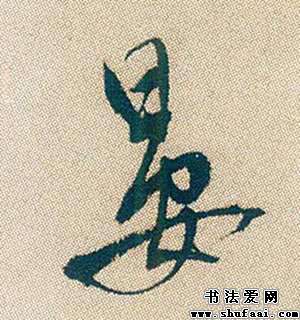 晏
书法爱网
www.shufaai.com